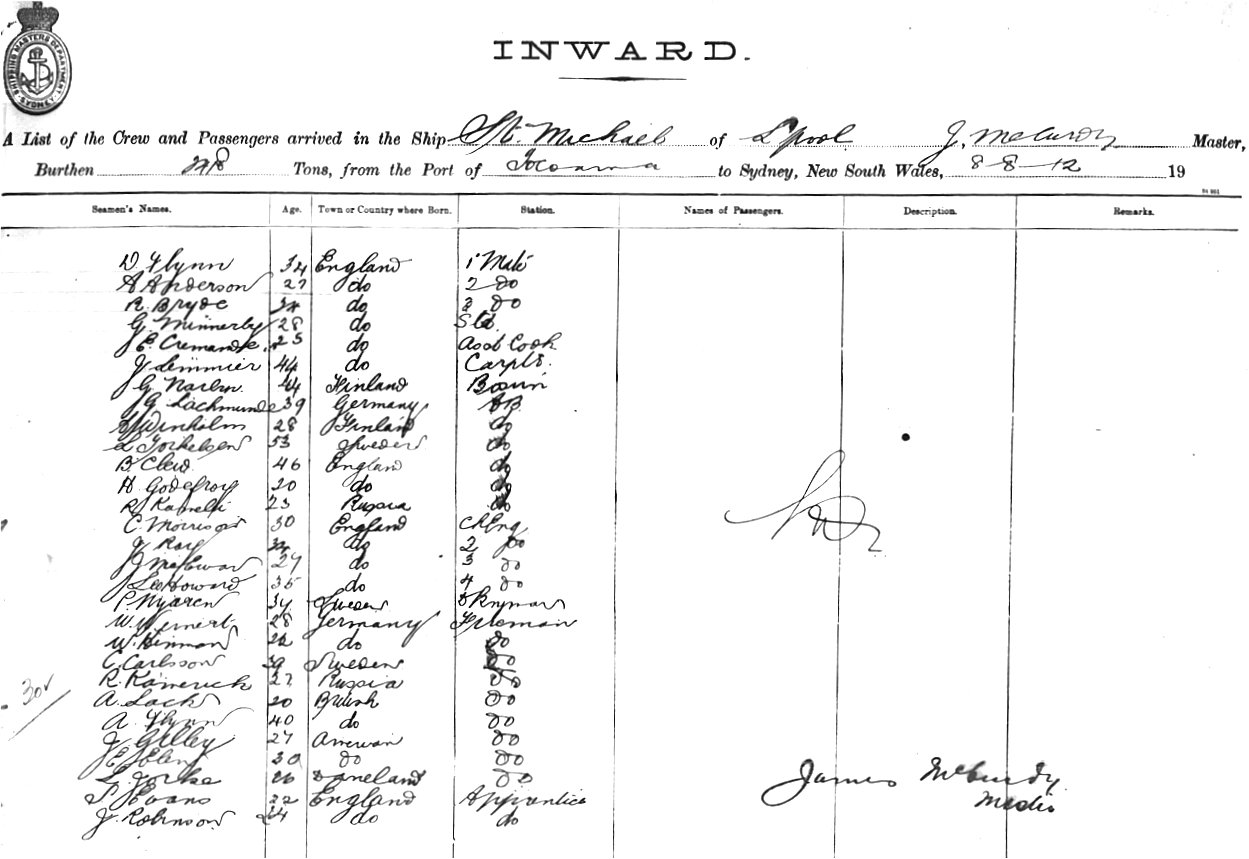 SHIPPING MASTERS DEPARTMENT SYDNEY
INWARD.
A List of the Crew and Passengers arrived in the Ship St. Michael of Lpool J. McCurdy Master,
Burthen Tons, from the Port of to Sydney, New South Wales, 8-8-12 19
Seamen's Names. Age. Town or Country where Born. Station. Names of Passengers. Description. Remarks.
D Flynn 34 England 1 Mate
A Anderson 27 do 2 do
R. Bryde do 3 do
G. Minnerby 28 do Std
J E. Cremande 25 do Asst Cook
J 44 do Carptr.
J G 44 Finland Bosun
J G. Lachmunde 39 Germany AB
A Winholm 28 Finland do
L Torkelsen 53 Sweden do
B. Clew 46 England do
A Godefroy 20 do do
R 23 Russia do
C. Morrison 30 England Ch Eng
J Roy do 2 do
J McEwan 27 do 3 do
J Leo Howard 35 do 4 do
P. Nyaren 34 Sweden Dkyman
W. Wernert 28 Germany Fireman
W. Hinman 22 do do
C. Carlsson 39 Sweden do
R. Kamerick 27 Russia do
A. Lack 20 British do
A. Flynn 40 do do
J Gilley 27 American do
E 30 do do
L. 26 Daneland do
S Evans 22 England Apprentice
J. Robinson 24 do do
James McCurdy